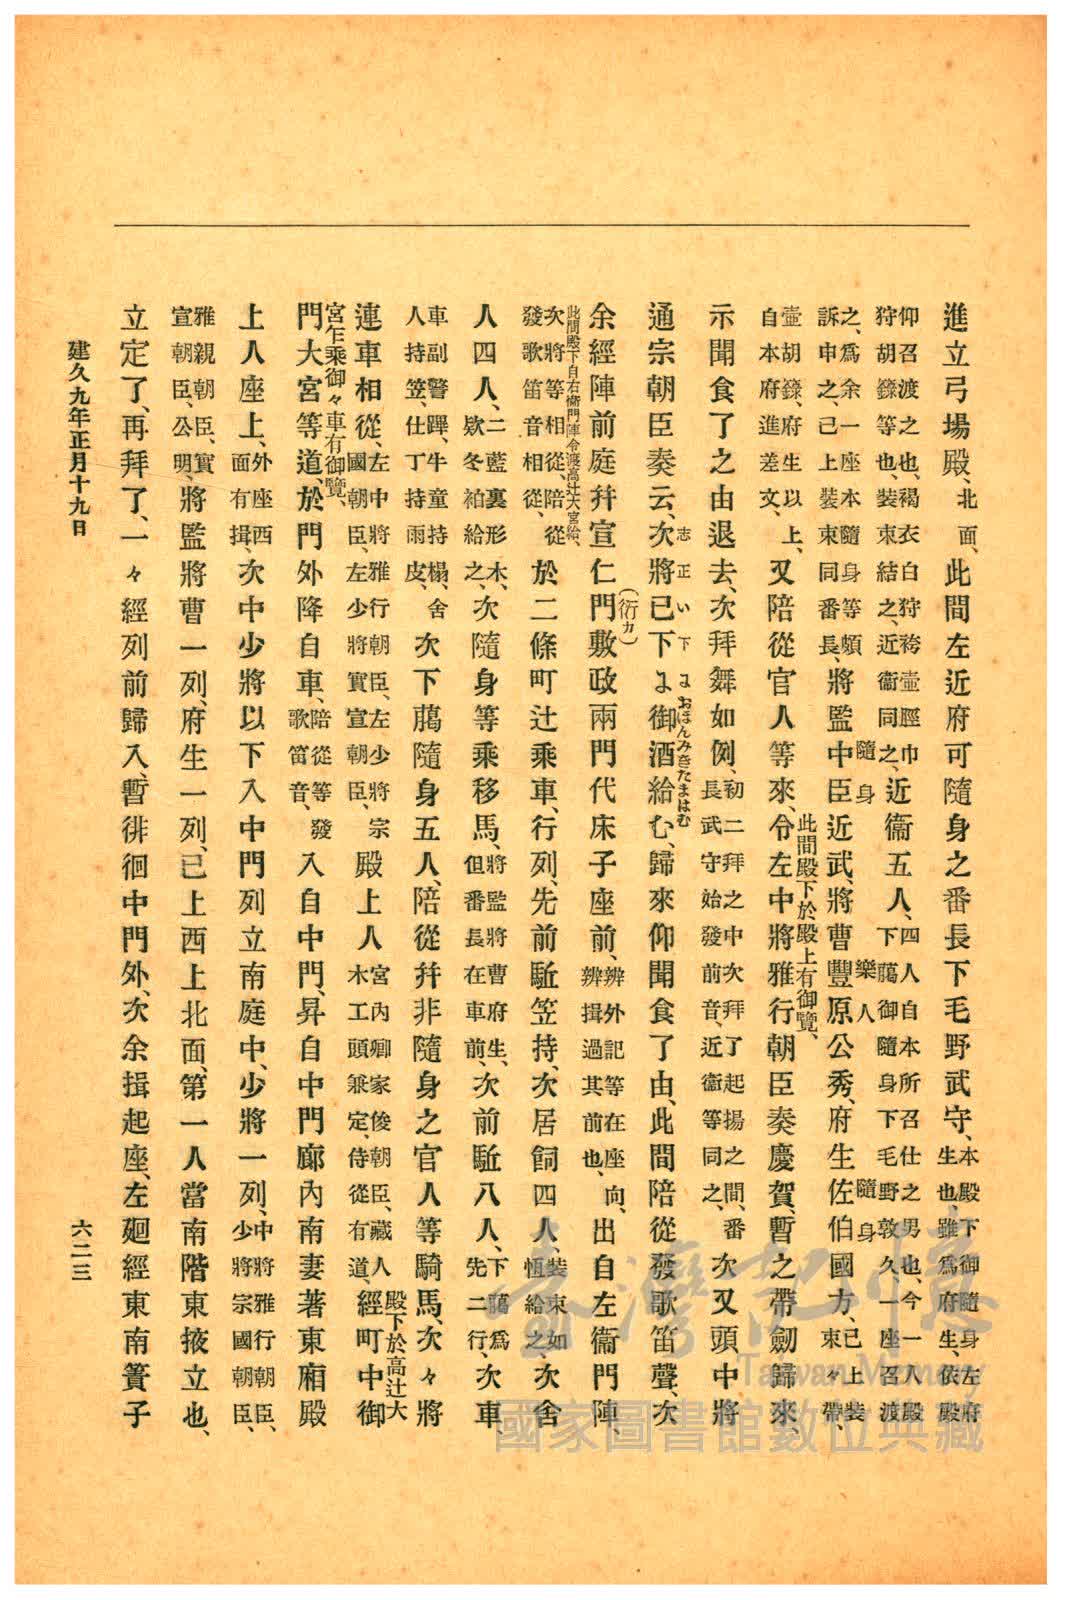 進立弓場殿、北面、此間左近府可隨身之番長下毛野武守、本殿下御隨身左府生也、雖爲府生、依殿
仰召渡之也、褐衣白狩袴壺脛巾狩胡籙等也、裝束結之、近衞同之、近衞五人、四人自本所召仕之男也、今一人殿下﨟御隨身下毛野敦久、一座召渡
之、爲余一座本隨身等頗訴申之、已上裝束同番長、將監中臣近武、隨身將曹豐原公秀、樂人府生佐伯國方、隨身已上裝束々帶、
壺胡籙、府生以上、自本府進差文、又陪從官人等來、令左中將雅行朝臣奏慶賀、暫之帶劒歸來、此間殿下於殿上有御覽、
示聞食了之由退去、次拜舞如例、初二拜之中次拜了起揚之間、番長武守始發前音、近衞等同之、次又頭中將
通宗朝臣奏云、次將已下に御酒給む、歸來仰聞食了由、此間陪從發歌笛聲、次
志正い下よ おほんみきたまはむ
余經陣前庭幷宣仁門敷政兩門代床子座前、辨外記等在座向、辨揖過其前也、出自左衞門陣、
(衍カ)
此間殿下自右衞門陣令渡高辻大宮給、
次將等相從、陪從發歌笛音相從、於二條町辻乘車、行列、先前駈笠持、次居飼四人、裝束如恆給之、次舍
人四人、二藍裏形木、欵冬袙給之、次隨身等乘移馬、將監將曹府生、但番長在車前、次前駈八人、下﨟爲先二行、次車
車副警蹕、牛童持榻、舍人持笠、仕丁持雨皮、次下﨟隨身五人、陪從幷非隨身之官人等騎馬、次々將
連車相從、左中將雅行朝臣、左少將宗國朝臣、左少將實宣朝臣、殿上人宮內卿家俊朝臣、藏人木工頭兼定、侍從有道、經町中御
殿下於高辻大宮乍乘御々車有御覽、
門大宮等道、於門外降自車、陪從等發歌笛音、入自中門、昇自中門廊內南妻著東廂殿
上人座上、外座西面有揖、次中少將以下入中門列立南庭中、少將一列、中將雅行朝臣、少將宗國朝臣、
雅親朝臣、實宣朝臣、公明、將監將曹一列、府生一列、已上西上北面、第一人當南階東掖立也、
立定了、再拜了、一々經列前歸入、暫徘徊中門外、次余揖起座、左廻經東南簀子
建久九年正月十九日
六二三
臺灣記憶
Taiwan Memory
國家圖書館數位典藏